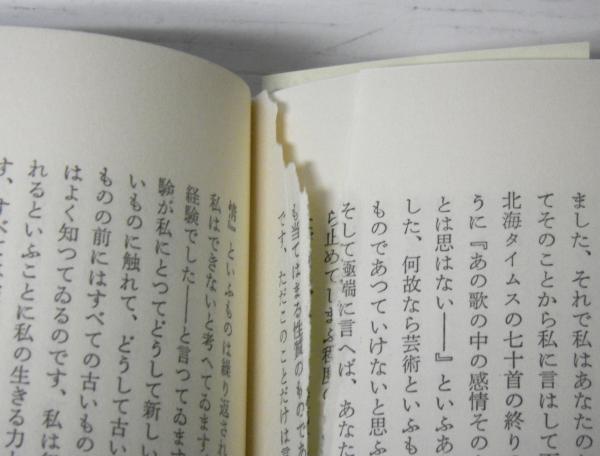 ました、それで私はあなたの
てそのことから私に言はして
北海タイムスの七十首の終り
うに『あの歌の中の感情その
とは思はない――』といふあ
した、何故なら芸術といふも
ものであつていけないと思ふ
そして極端に言へば、あなた
ら止めてしまふ程度の
も当てはまる性質のものであ
です、ただこのことだけは言
情』といふものは繰り返され
私はできないと考へてゐます
経験でした――と言つてゐます
験が私にとつてどうして新しい
いものに触れて、どうして古い
ものの前にはすべての古いもの
はよく知つてゐるのです、私は
れるといふことに私の生きる力
す、すべて